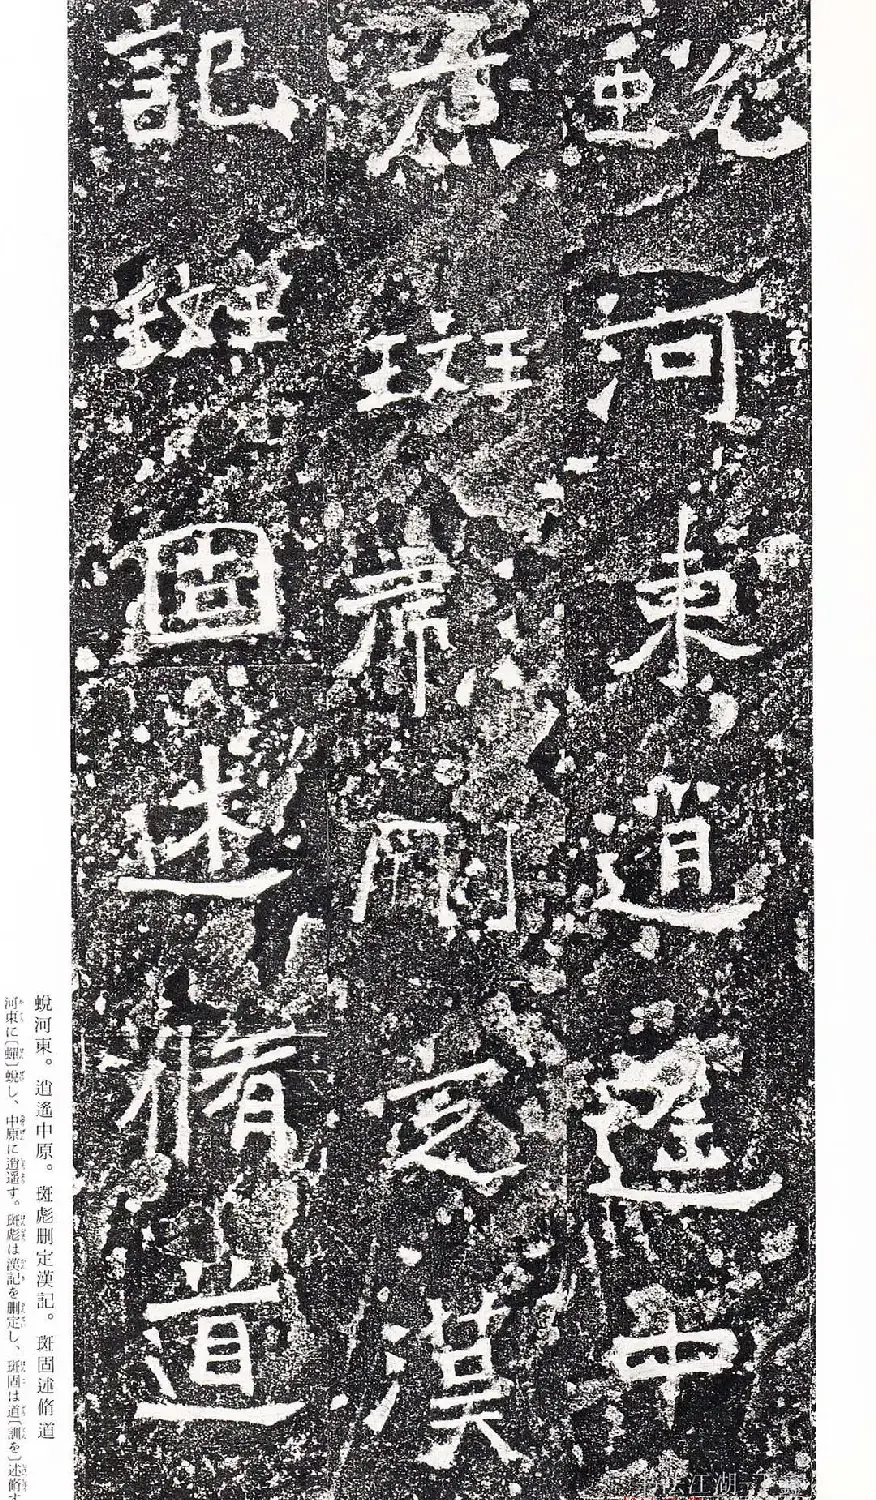 蛻河東逍遙中
原斑彪刪定漢
記斑固述脩道
蛻河東。逍遙中原。斑彪刪定漢記。斑固述脩道
河東に〔蟬〕蛻し、中原に逍遙す。斑彪は漢記を刪定し、斑固は道〔訓を〕述脩す
江湖